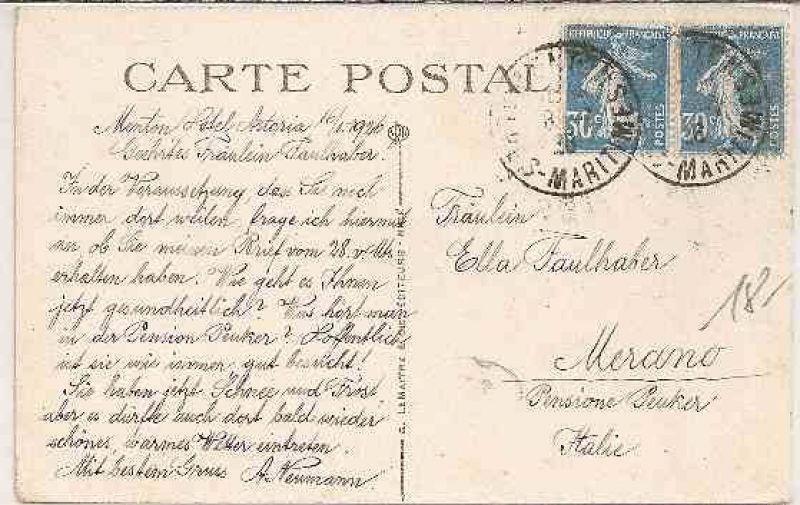 CARTE POSTAL
REPUBLIQUE FRANÇAISE
30c
POSTES
REPUBLIQUE FRANÇAISE
30c
POSTES
S-MARITIMES
S-MARITIMES
Menton Hotel Astoria 16/1.1926
Geehrtes Fräulein Faulhaber!
In der Voraussetzung, dass Sie noch
immer dort weilen, frage ich hiermit
an ob Sie meinen Brief vom 28. v. Mts
erhalten haben. Wie geht es Ihnen
jetzt gesundheitlich? Was hört man
in der Pension Peuker? Hoffentlich
ist sie wie immer gut besucht!
Sie haben jetzt Schnee und Frost
aber es dürfte auch dort bald wieder
schönes, warmes Wetter eintreten.
Mit bestem Gruss A. Neumann.
G. LEMAITRE ÉDITEURS - NICE
Fräulein
Ella Faulhaber
Merano
Pensione Peuker
Italie
18